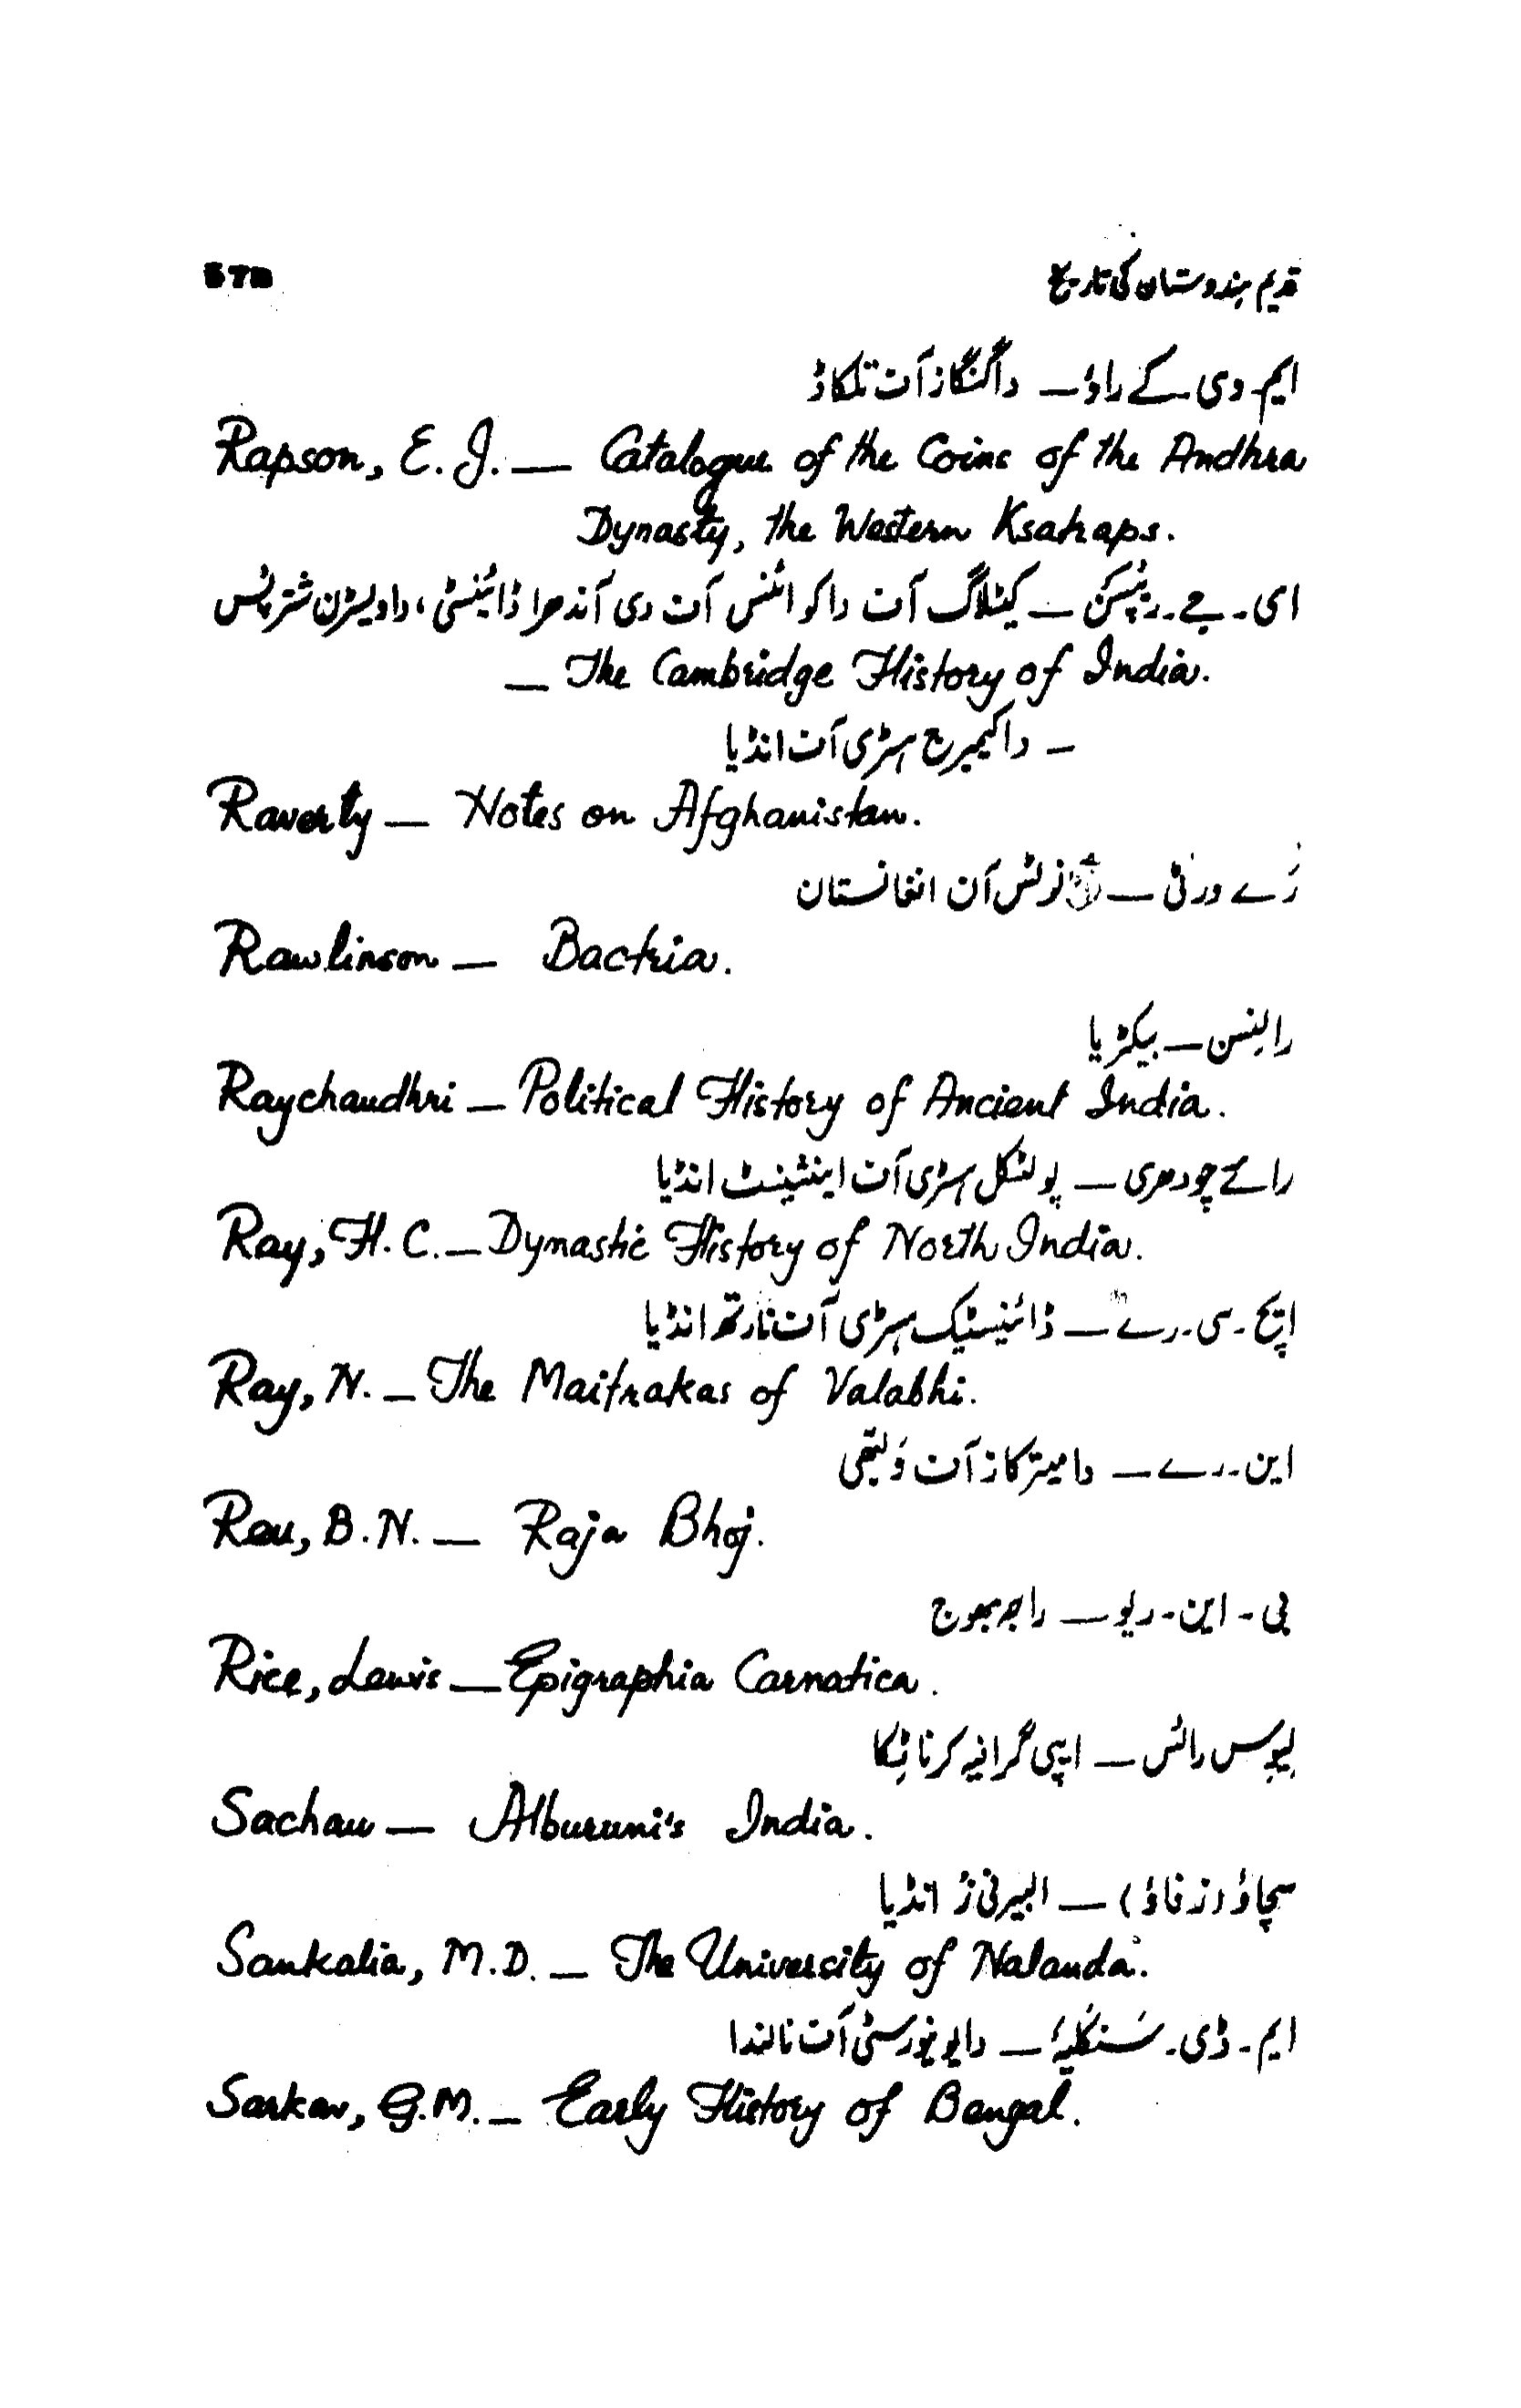 قدیم ہندوستان کی تاریخ
ایم۔ وی۔ کے راؤ — دا گنگاز آف تلکاڈ
Rapson, E. J. — Catalogue of the Coins of the Andhra
Dynasty, the Western Ksatraps.
ای۔ جے۔ ریپسن — کیٹلاگ آف دا کوائنس آف دی آندھرا ڈائینسٹی، دا ویسٹرن شترپس
— The Cambridge History of India.
— دا کیمبرج ہسٹری آف انڈیا
Raverty — Notes on Afghanistan.
رے ورٹی — نوٹس آن افغانستان
Rawlinson — Bactria.
رالنسن — بیکٹریا
Raychaudhri — Political History of Ancient India.
رائے چودھری — پولٹکل ہسٹری آف اینشینٹ انڈیا
Ray, H. C. — Dynastic History of North India.
ایچ۔ سی۔ رے — ڈائینسٹیک ہسٹری آف نارتھ انڈیا
Ray, N. — The Maitrakas of Valabhi.
این۔ رے — دا میترکاز آف وَلبھی
Reu, B. N. — Raja Bhoj.
بی۔ این۔ ریو — راجہ بھوج
Rice, Lewis — Epigraphia Carnatica.
لیوس رائس — اپی گرافیہ کرناٹکا
Sachau — Alburuni's India.
سچاؤ (زفاؤ) — البیرنی زُ انڈیا
Sankalia, M.D. — The University of Nalanda.
ایم۔ ڈی۔ سَنکلیہ — دا یونیورسٹی آف نالندا
Sarkar, G.M. — Early History of Bengal.